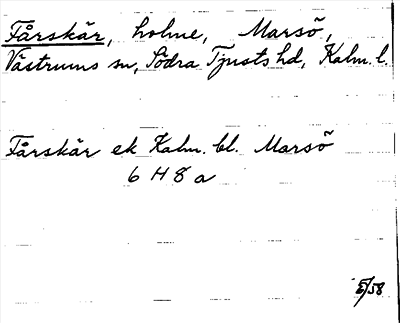 Fårskär, holme, Marsö,
Västrums sn, Södra Tjusts hd, Kalm. l.
Fårskär ek Kalm. bl. Marsö
6 H 8 a
/58